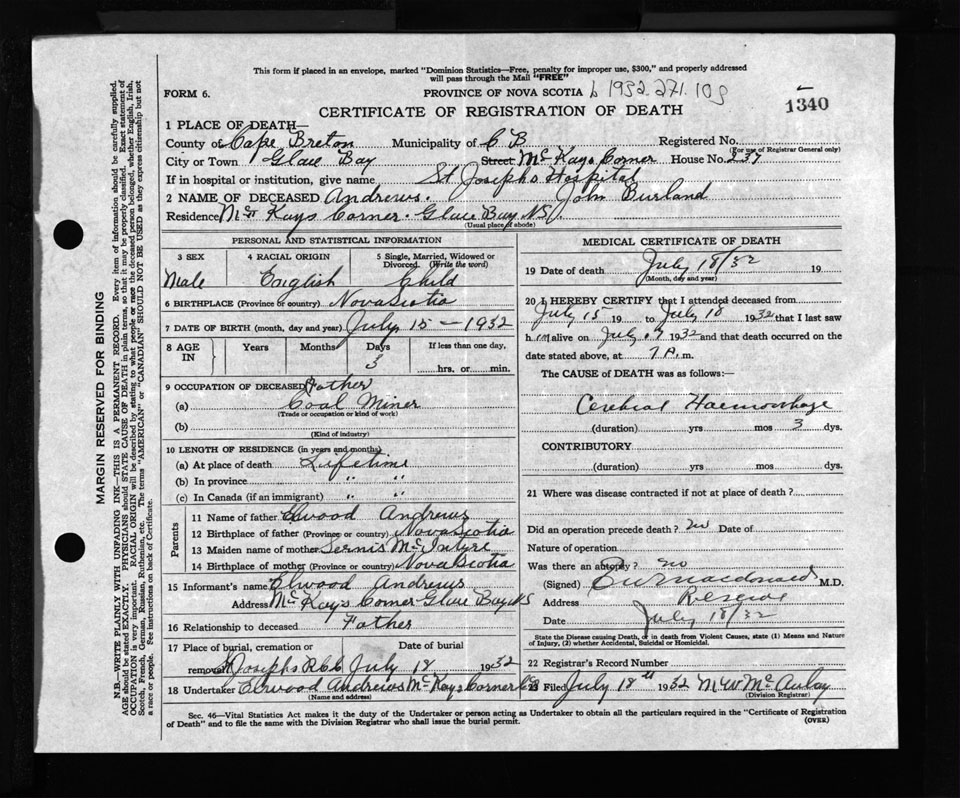 This form if placed in an envelope, marked "Dominion Statistics—Free, penalty for improper use, $300," and properly addressed
will pass through the Mail "FREE"
FORM 6.
PROVINCE OF NOVA SCOTIA b 1932.271.109
1340
CERTIFICATE OF REGISTRATION OF DEATH
1 PLACE OF DEATH—
County of Cape Breton Municipality of C B Registered No.
(For use of Registrar General only)
City or Town Glace Bay Street McKays Corner House No. 237
If in hospital or institution, give name St Josephs Hospital
2 NAME OF DECEASED Andrews. John Burland
Residence McKays Corner Glace Bay NS.
(Usual place of abode)
PERSONAL AND STATISTICAL INFORMATION
3 SEX 4 RACIAL ORIGIN 5 Single, Married, Widowed or Divorced. (Write the word)
Male English Child
6 BIRTHPLACE (Province or country) Nova Scotia
7 DATE OF BIRTH (month, day and year) July 15 - 1932
8 AGE IN Years Months Days 3 If less than one day, hrs. or min.
9 OCCUPATION OF DECEASED Father
(a) Coal Miner
(Trade or occupation or kind of work)
(b)
(Kind of industry)
10 LENGTH OF RESIDENCE (in years and months)
(a) At place of death Lifetime
(b) In province " "
(c) In Canada (if an immigrant) " "
Parents
11 Name of father Elwood Andrews
12 Birthplace of father (Province or country) Nova Scotia
13 Maiden name of mother McIntyre
14 Birthplace of mother (Province or country) Nova Scotia
15 Informant's name Elwood Andrews
Address McKays Corner Glace Bay NS
16 Relationship to deceased Father
17 Place of burial, cremation or removal Date of burial
St Josephs July 18 1932
18 Undertaker Elwood Andrews McKays Corner
(Name and address)
MEDICAL CERTIFICATE OF DEATH
19 Date of death July 18/32 19
(Month, day and year)
20 I HEREBY CERTIFY that I attended deceased from
July 15 19 to July 18 1932 that I last saw
h alive on July 17 1932 and that death occurred on the
date stated above, at 7 P.m.
The CAUSE of DEATH was as follows:—
Cerebral Haemorrhage
(duration) yrs mos 3 dys.
CONTRIBUTORY
(duration) yrs mos dys.
21 Where was disease contracted if not at place of death?
Did an operation precede death? no Date of
Nature of operation
Was there an autopsy? no
(Signed) Macdonald M.D.
Address Reserve
Date July 18/32
State the Disease causing Death, or in death from Violent Causes, state (1) Means and Nature
of Injury, (2) whether Accidental, Suicidal or Homicidal.
22 Registrar's Record Number
23 Filed July 18th 1932 M W McAulay
(Division Registrar)
Sec. 46—Vital Statistics Act makes it the duty of the Undertaker or person acting as Undertaker to obtain all the particulars required in the "Certificate of Registration
of Death" and to file the same with the Division Registrar who shall issue the burial permit.
(OVER)
MARGIN RESERVED FOR BINDING
N.B.—WRITE PLAINLY WITH UNFADING INK—THIS IS A PERMANENT RECORD. Every item of information should be carefully supplied.
AGE should be stated EXACTLY. PHYSICIANS should STATE CAUSE OF DEATH in plain terms, so that it may be properly classified. Exact statement of
OCCUPATION is very important. RACIAL ORIGIN will be described by stating to what people or race the deceased person belonged, whether English, Irish,
Scotch, French, German, Russian, Ruthenian, etc. The terms "AMERICAN" or "CANADIAN" SHOULD NOT BE USED as they express citizenship but not
a race or people. See instructions on back of Certificate.